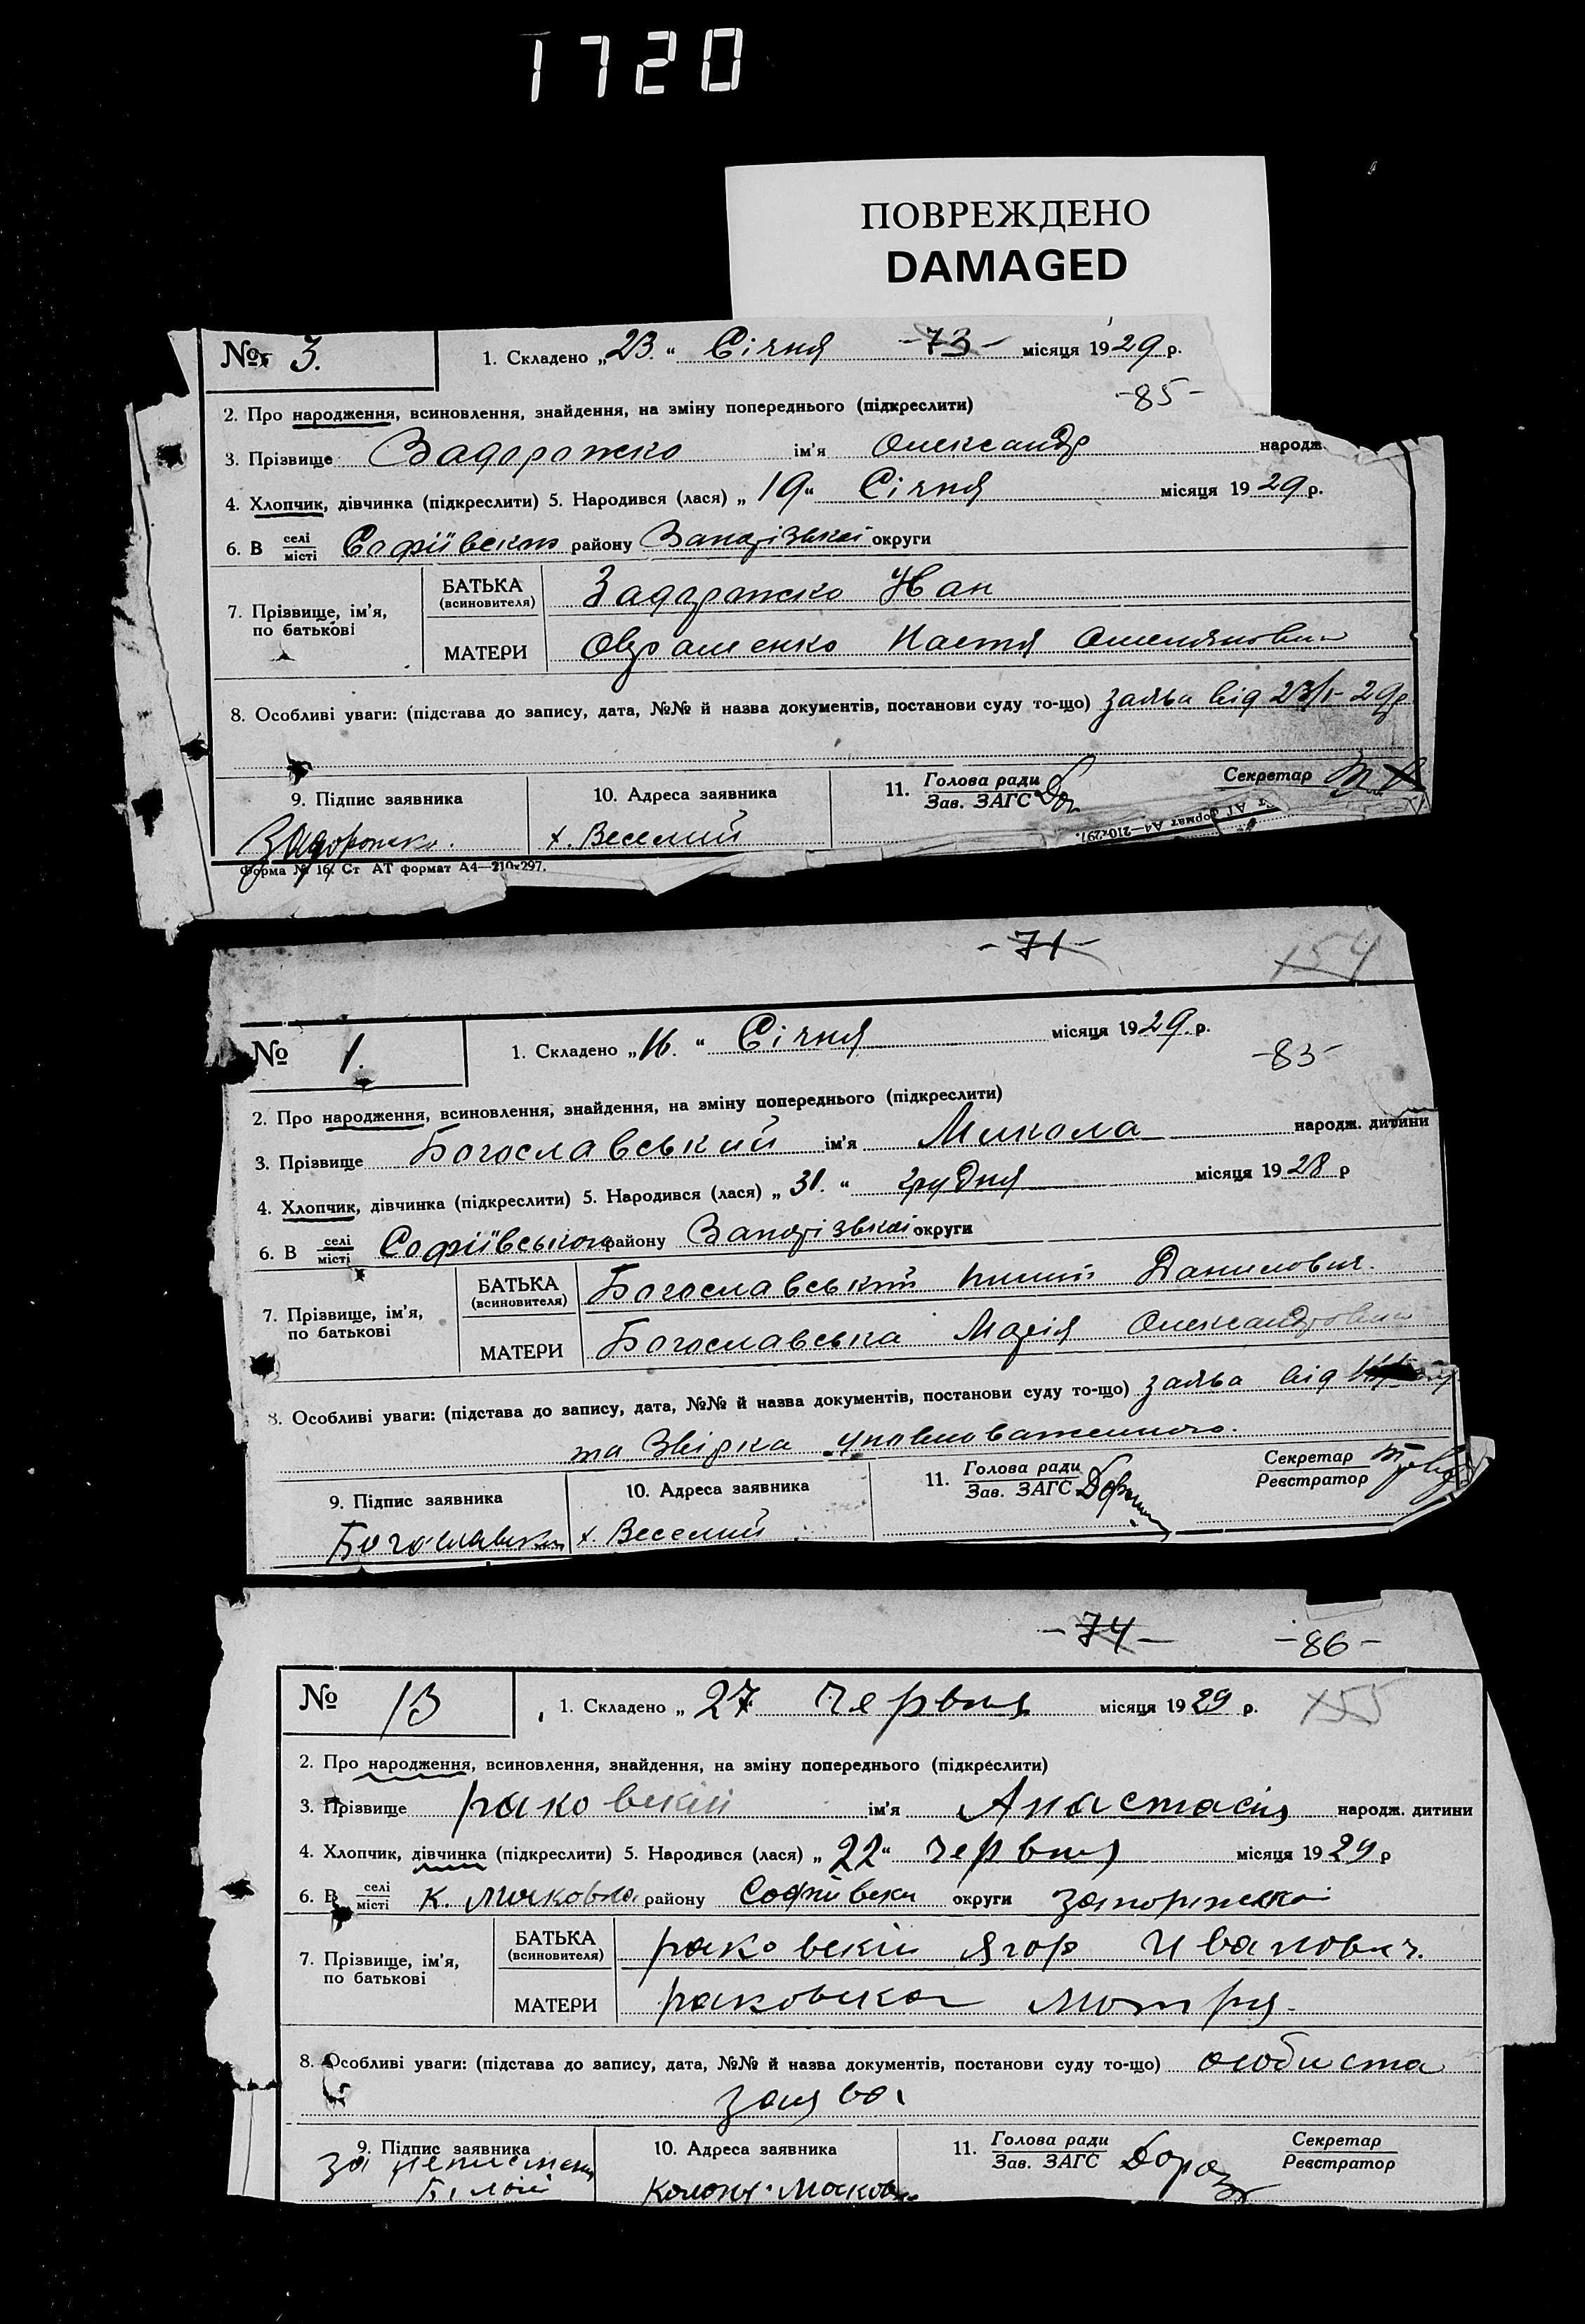 1720
ПОВРЕЖДЕНО
DAMAGED
№ 3. 1. Складено „23.“ Січня -73- місяця 1929 р.
-85-
2. Про народження, всиновлення, знайдення, на зміну попереднього (підкреслити)
3. Прізвище Задорожко ім'я Олександр народж.
4. Хлопчик, дівчинка (підкреслити) 5. Народився (лася) „19“ Січня місяця 1929 р.
6. В селі/місті Софіївского району Запорізької округи
7. Прізвище, ім'я, по батькові
БАТЬКА (всиновителя) Задорожко Иван
МАТЕРИ Настя Омеляновна
8. Особливі уваги: (підстава до запису, дата, №№ й назва документів, постанови суду то-що) заява від 23/I-29р
9. Підпис заявника 10. Адреса заявника 11. Голова ради/Зав. ЗАГС Секретар
Задорожко. х. Веселий
Форма № 16. Ст АТ формат А4—210х297.
-71- 154
№ 1. 1. Складено „16.“ Січня місяця 1929 р.
-83-
2. Про народження, всиновлення, знайдення, на зміну попереднього (підкреслити)
3. Прізвище Богославський ім'я Микола народж. дитини
4. Хлопчик, дівчинка (підкреслити) 5. Народився (лася) „31.“ грудня місяця 1928 р
6. В селі/місті Софіївського району Запорізької округи
7. Прізвище, ім'я, по батькові
БАТЬКА (всиновителя) Богославський Данилович.
МАТЕРИ Богославська Марія Олександровна
8. Особливі уваги: (підстава до запису, дата, №№ й назва документів, постанови суду то-що) заява від
та Звірка уповноваженного.
9. Підпис заявника 10. Адреса заявника 11. Голова ради/Зав. ЗАГС Секретар/Реєстратор
х. Веселий
-74- -86-
№ 13 1. Складено „27 червня місяця 1929 р. 155
2. Про народження, всиновлення, знайдення, на зміну попереднього (підкреслити)
3. Прізвище раковскій ім'я Анастасія народж. дитини
4. Хлопчик, дівчинка (підкреслити) 5. Народився (лася) „22“ червня місяця 1929 р
6. В селі/місті К. району Софіївски округи запоріжской
7. Прізвище, ім'я, по батькові
БАТЬКА (всиновителя) раковскій Ягор Иванович.
МАТЕРИ раковска мотря.
8. Особливі уваги: (підстава до запису, дата, №№ й назва документів, постанови суду то-що) особиста
заява
9. Підпис заявника 10. Адреса заявника 11. Голова ради/Зав. ЗАГС Секретар/Реєстратор
за